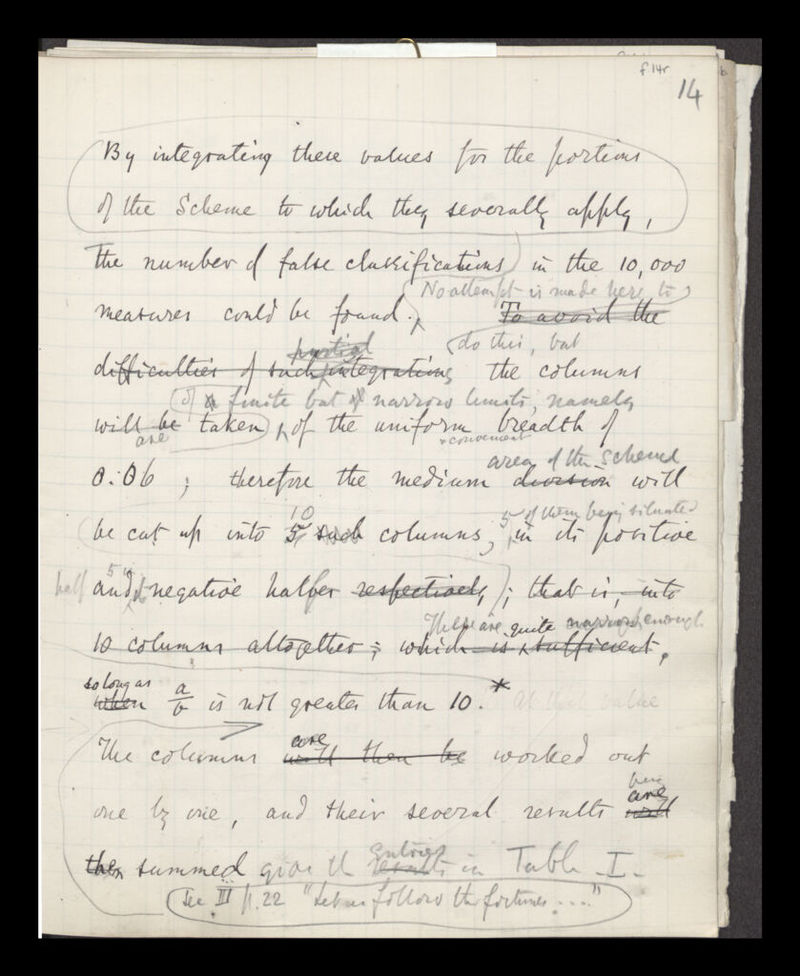 f 14r
14
By integrating these values for the portions
of the Scheme to which they severally apply,
the number of false classifications in the 10,000
No attempt is made here to
measures could be found. To avoid the
partial do this, but
difficulties of such integrations the columns
of a finite but of narrow limits, namely
will be taken, of the uniform breadth of
are convenient
area of the Scheme
0.06 ; therefore the medium division will
10 5 of them being situated
be cut up into 5 such columns, in its positive
5 in its
half and negative halfes respectively, ; that is, into
These are quite narrow enough
10 columns altogether ; which is sufficient,
so long as
when a/b is not greater than 10.* At that value
are
The columns will then be worked out
being
are
one by one, and their several results will
entries
then summed give the results in Table I.
See III p. 22 "Let us follow the fortunes ...."